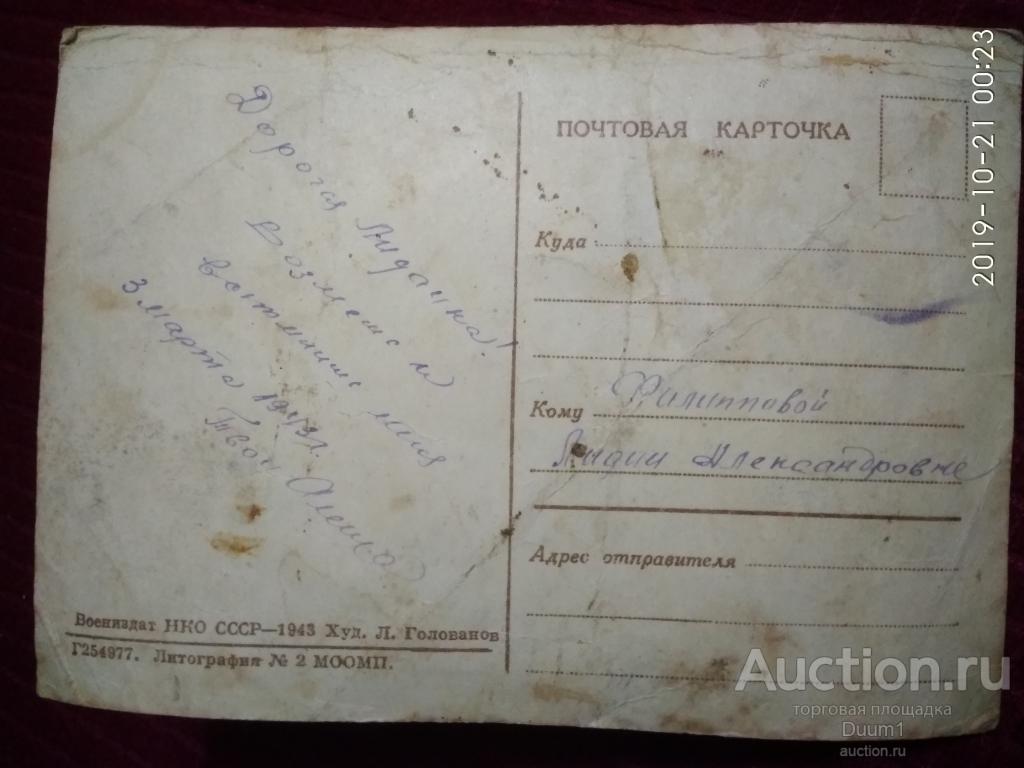 Дорогая Лидачка!
Возмеш и
вспомниш меня
3 марта 1943 г.
Твой Алеша
Воениздат НКО СССР—1943 Худ. Л. Голованов
Г254977. Литография № 2 МООМП.
ПОЧТОВАЯ КАРТОЧКА
Куда
Кому Филипповой
Лидии Александровне
Адрес отправителя
2019-10-21 00:23
Auction.ru
торговая площадка
Duum1
auction.ru